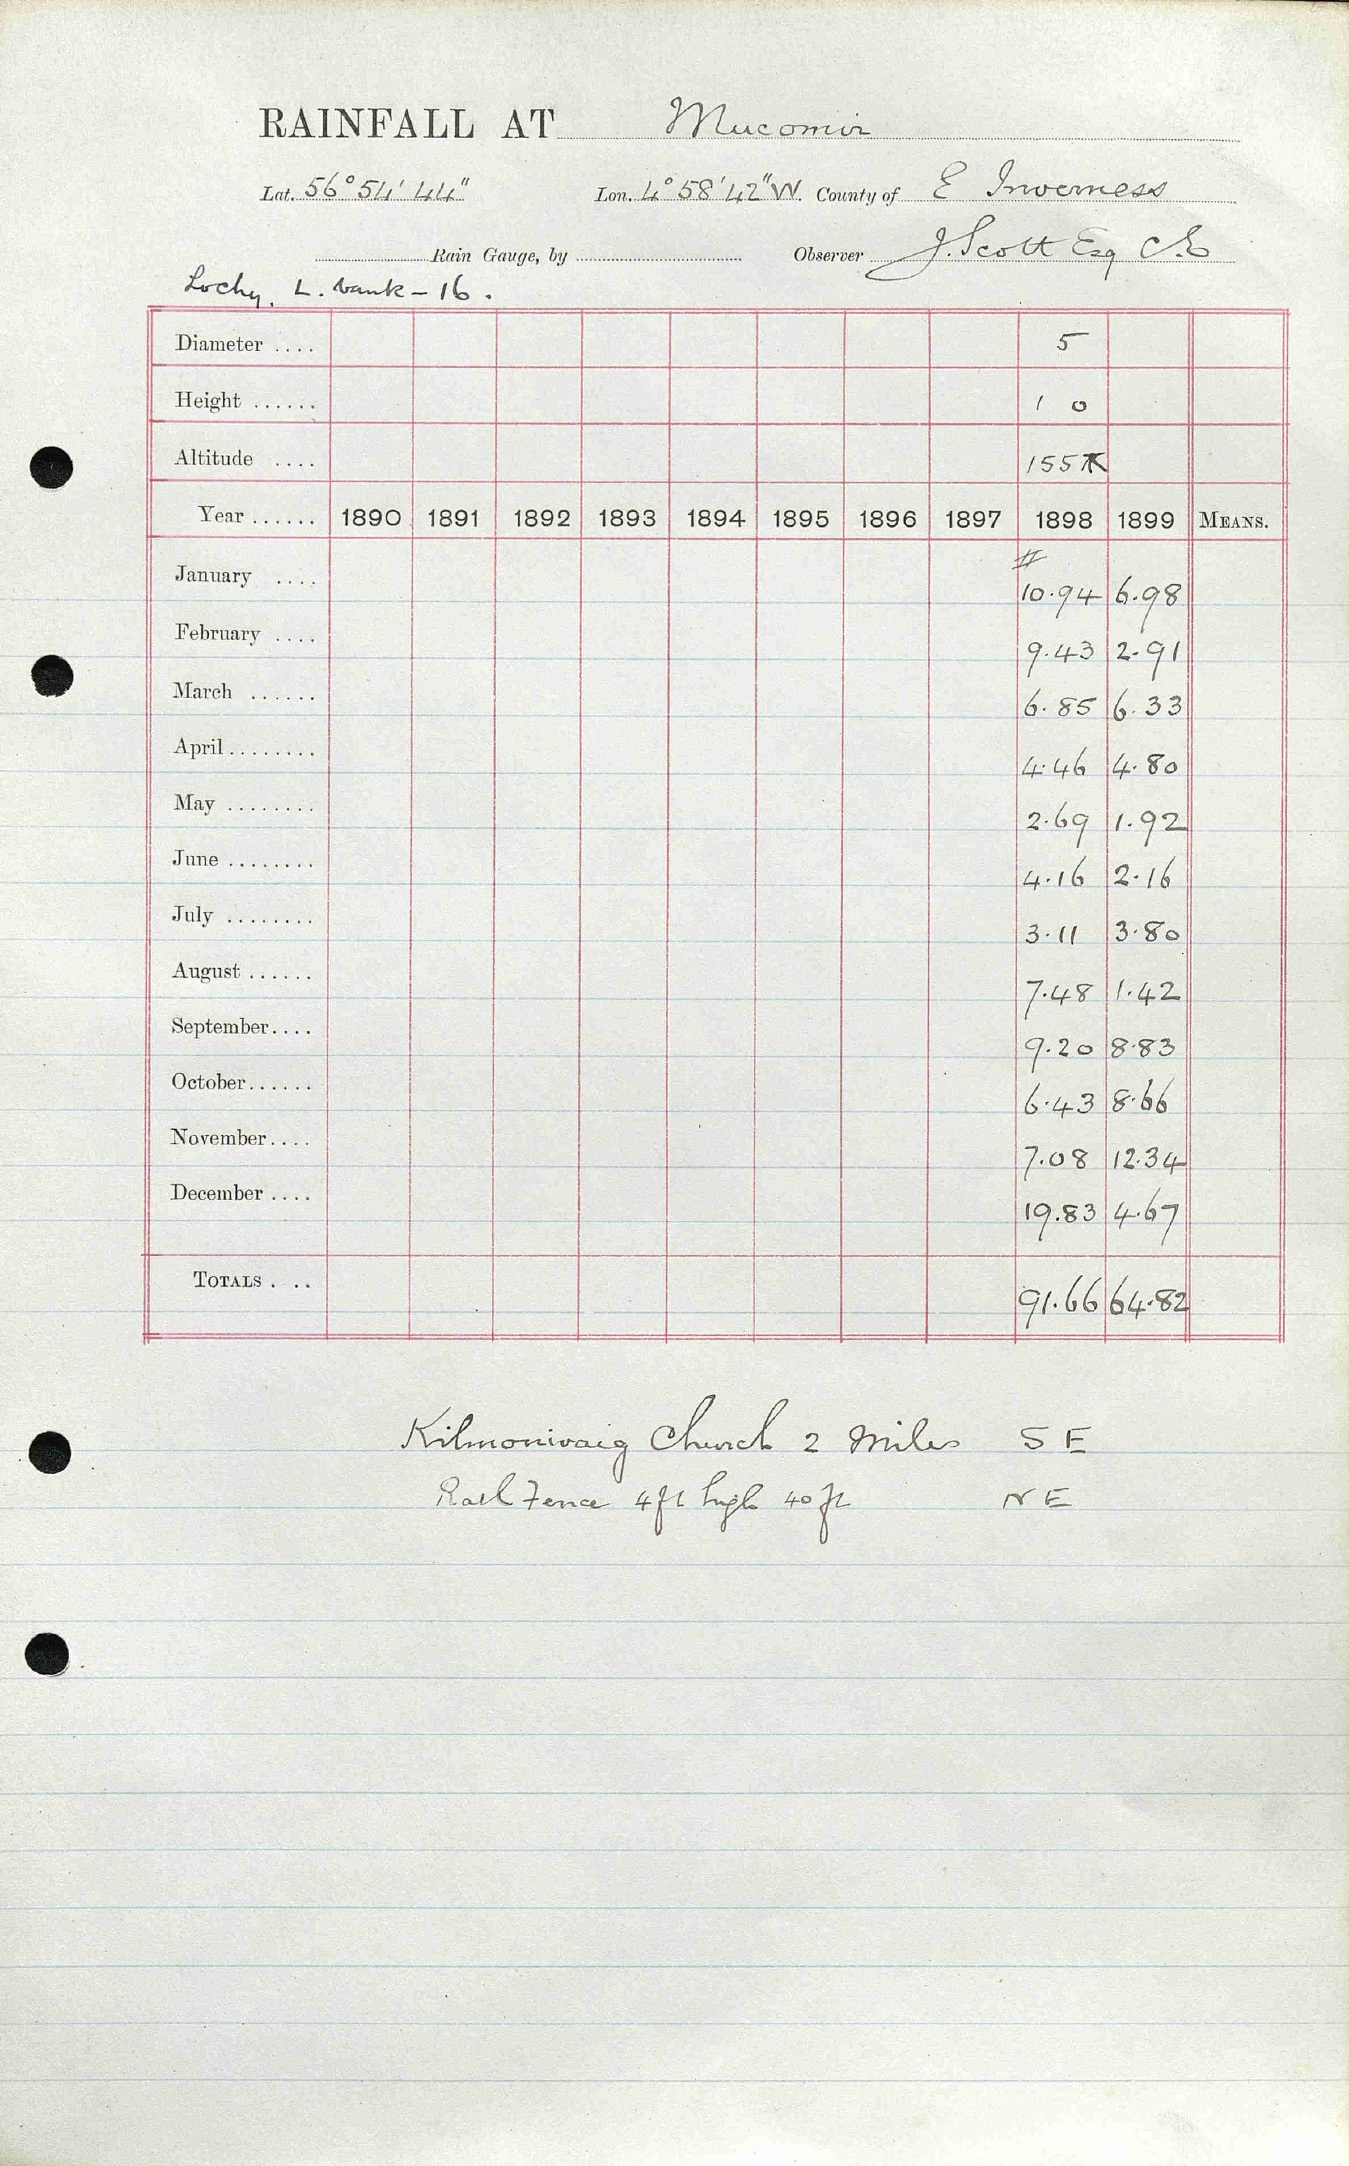 RAINFALL AT Mucomir
Lat. 56° 54' 44" Lon. 4° 58' 42" W. County of E Inverness
Rain Gauge, by Observer J. Scott Esq C.E
Lochy. L. bank - 16.
Diameter .... 5
Height ...... 1 0
Altitude .... 155
Year ...... 1890 1891 1892 1893 1894 1895 1896 1897 1898 1899 MEANS.
#
January .... 10.94 6.98
February .... 9.43 2.91
March ...... 6.85 6.33
April ........ 4.46 4.80
May ........ 2.69 1.92
June ........ 4.16 2.16
July ........ 3.11 3.80
August ...... 7.48 1.42
September.... 9.20 8.83
October...... 6.43 8.66
November.... 7.08 12.34
December .... 19.83 4.67
TOTALS . .. 91.66 64.82
Kilmonivaig Church 2 Miles S E
Rail Fence 4ft high 40 ft N E